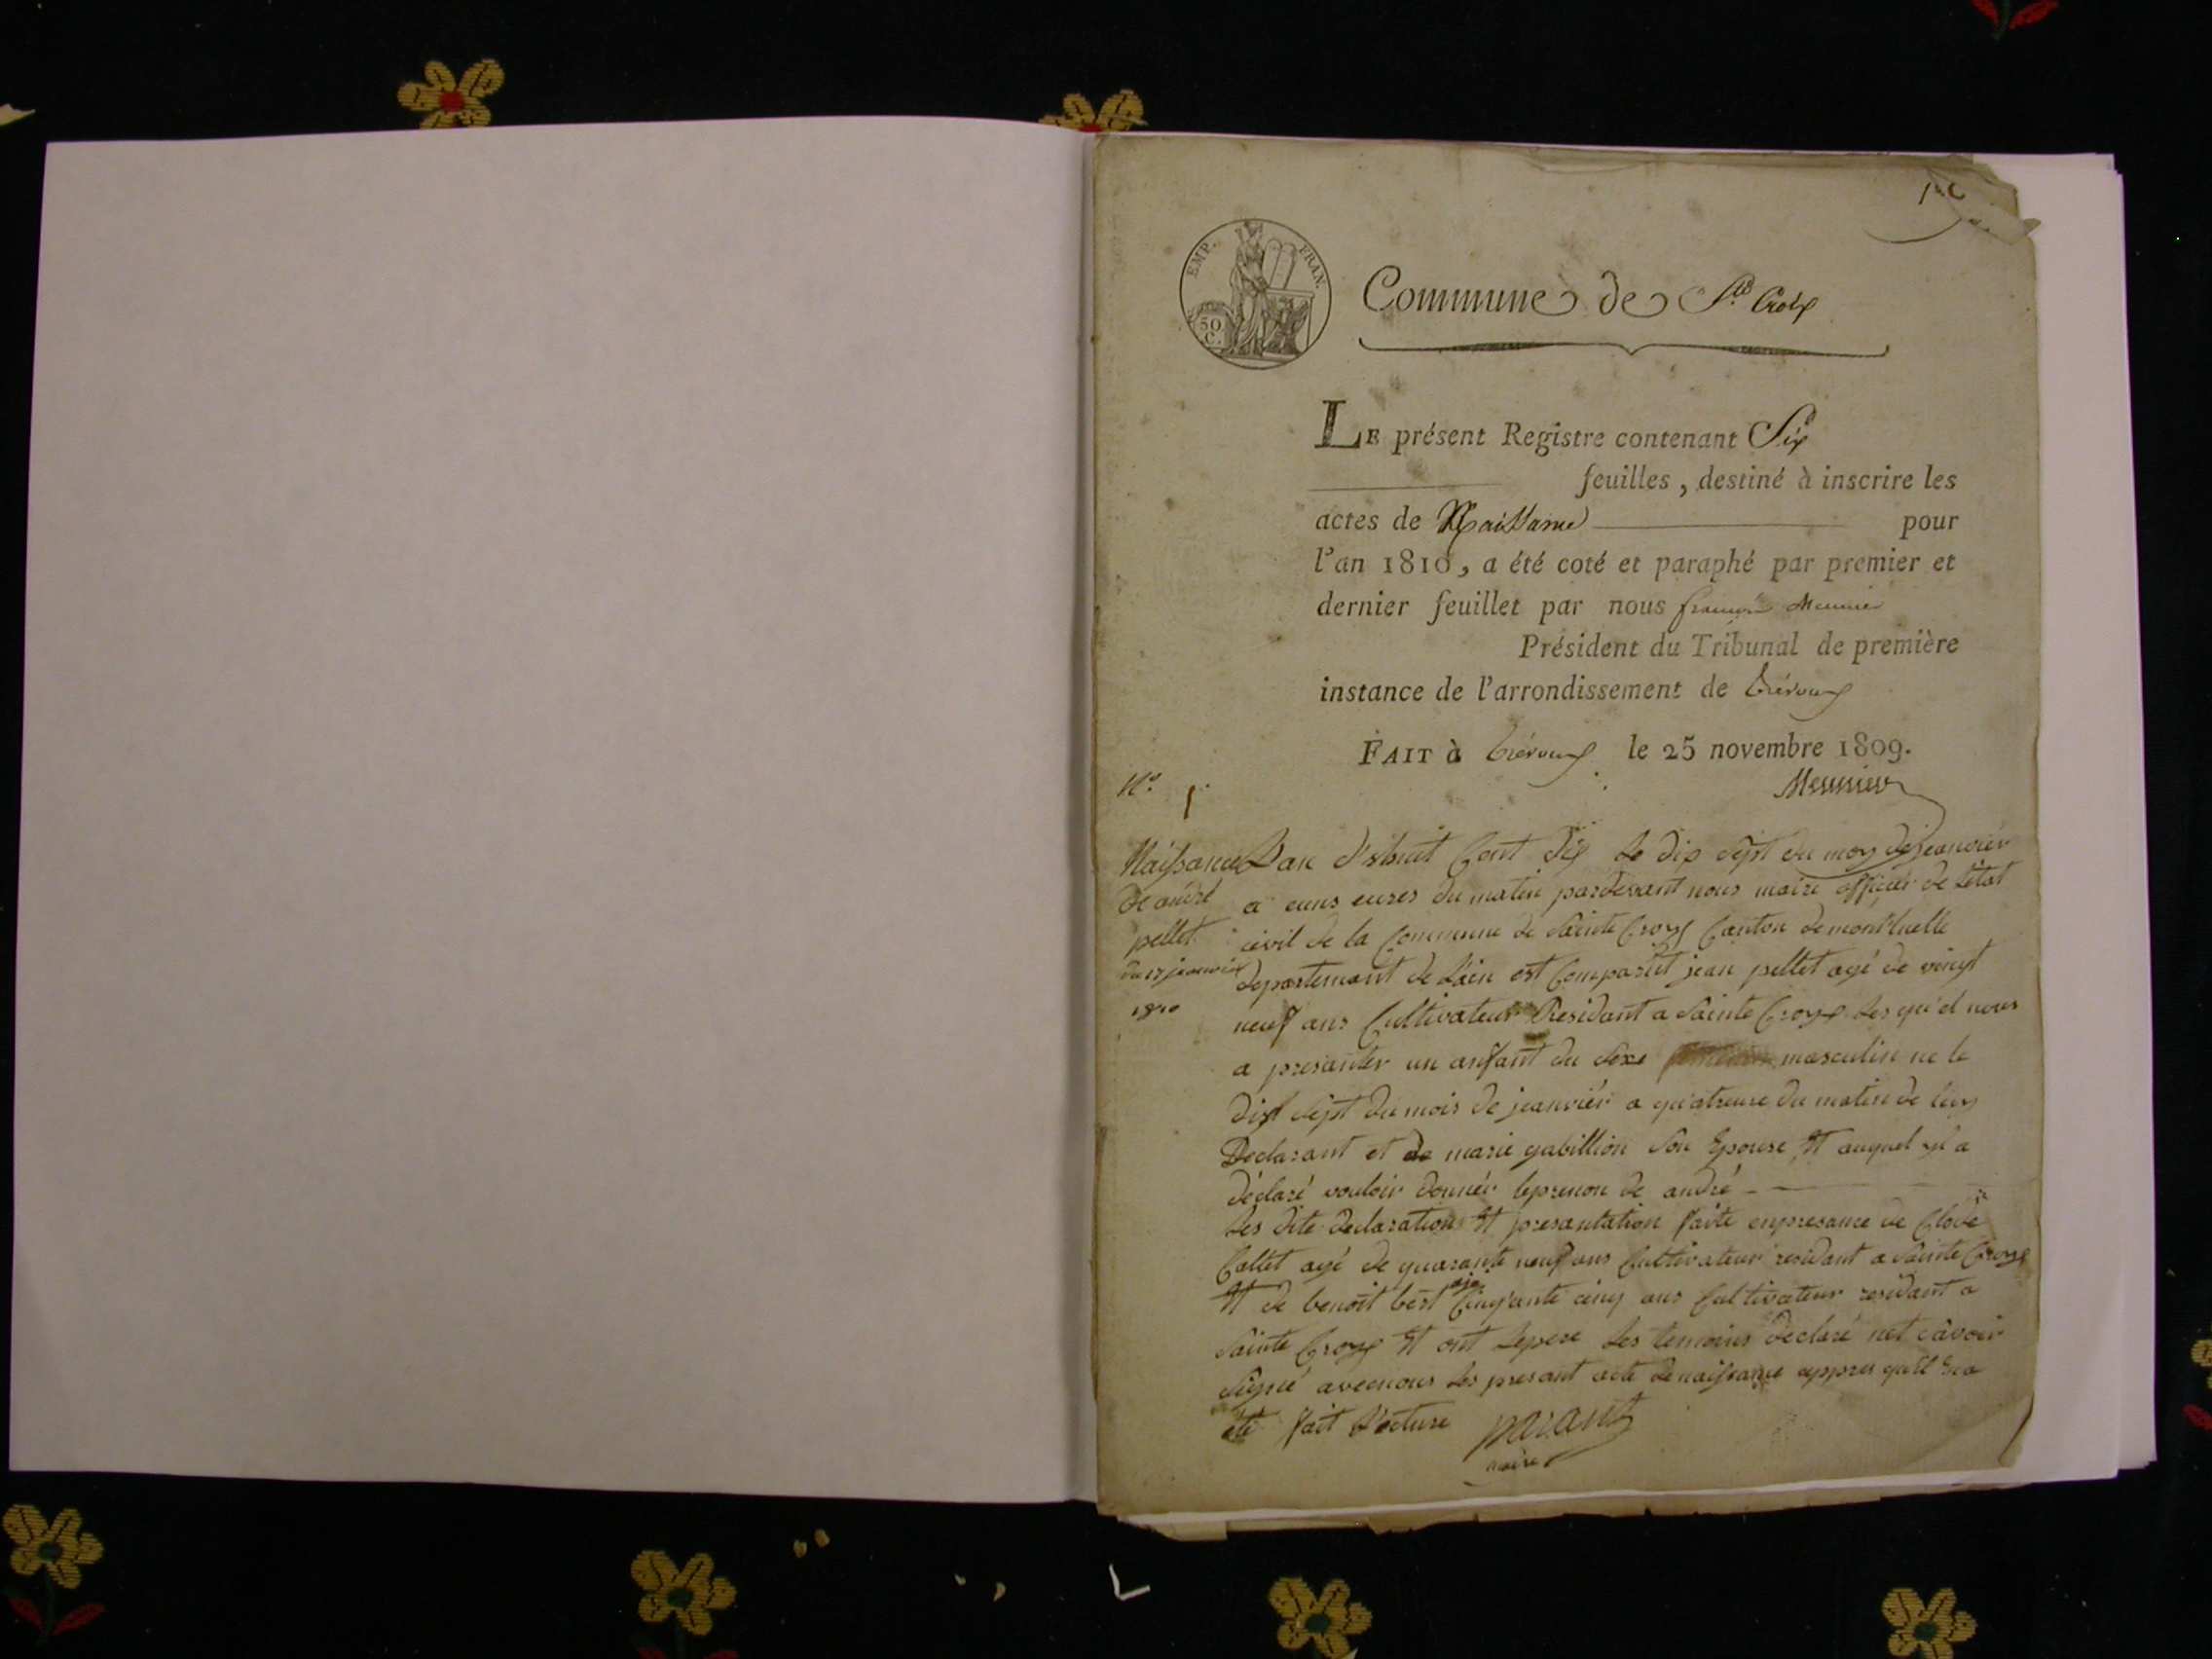 EMP. FRAN.
50
C.
Commune de Ste. Croix
LE présent Registre contenant Six
feuilles, destiné à inscrire les
actes de Naissance pour
l'an 1810, a été coté et paraphé par premier et
dernier feuillet par nous françois Meunier
Président du Tribunal de première
instance de l'arrondissement de trévoux
FAIT à trévoux le 25 novembre 1809.
Meunier
No. 1
Naissance
de andré
pellet
du 17 jeanvier
1810
L'an dishuit Cent dix le dix sept du moy de jeanvier
a euns eures du matin pardevant nous maire officier de l'état
civil de la Commune de Sainte Croix Canton de montluelle
departemant de L'ain est Comparut jean pellet agé de vingt
neuf ans Cultivateur Residant a Sainte Croye les qu'el nous
a presanter un anfant du Sexe masculin ne le
dix sept du mois de jeanvier a quatreure du matin de luy
Declarant et de marie gabillion Son Epouse Et auquel il a
déclaré vouloir donnér leprenon de andré
les dite declaration Et presantation faite enpresance de Clode
Collet agé de quarante neuf ans Cultivateur residant a Sainte Croye
Et de benoit best aje Cinquante cinq ans Cultivateur residant a
Sainte Croye Et ont Lepere les temoins declaré net Savoir
Signé avecnous les presant acte denaissance appres qu'il en a
été fait l'ecture parant
maire